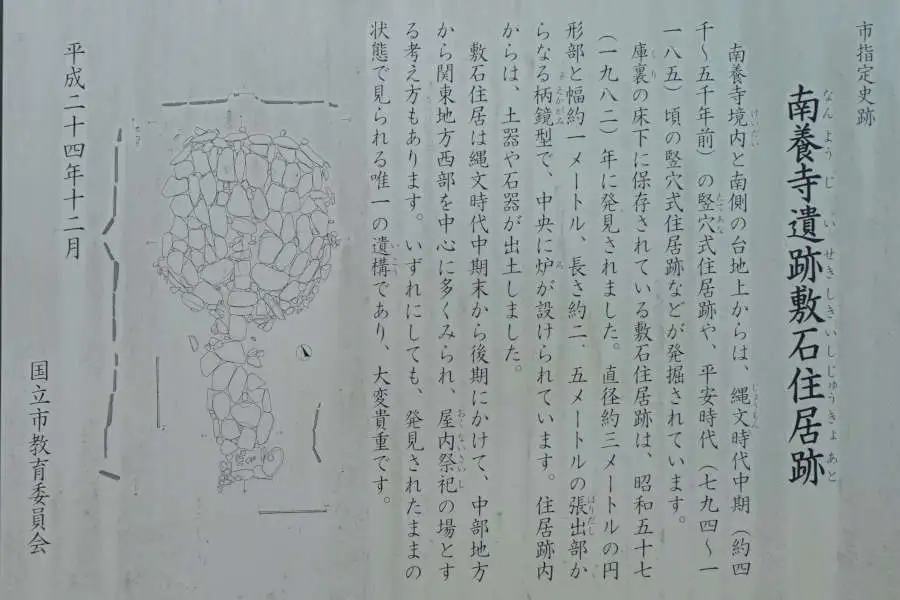 市指定史跡
南養寺遺跡敷石住居跡
なんようじいせきしきいしじゅうきょあと
南養寺境内と南側の台地上からは、縄文時代中期（約四
千〜五千年前）の竪穴式住居跡や、平安時代（七九四〜一
一八五）頃の竪穴式住居跡などが発掘されています。
庫裏の床下に保存されている敷石住居跡は、昭和五十七
（一九八二）年に発見されました。直径約三メートルの円
形部と幅約一メートル、長さ約二、五メートルの張出部か
らなる柄鏡型で、中央に炉が設けられています。住居跡内
からは、土器や石器が出土しました。
敷石住居は縄文時代中期末から後期にかけて、中部地方
から関東地方西部を中心に多くみられ、屋内祭祀の場とす
る考え方もあります。いずれにしても、発見されたままの
状態で見られる唯一の遺構であり、大変貴重です。
平成二十四年十二月
国立市教育委員会